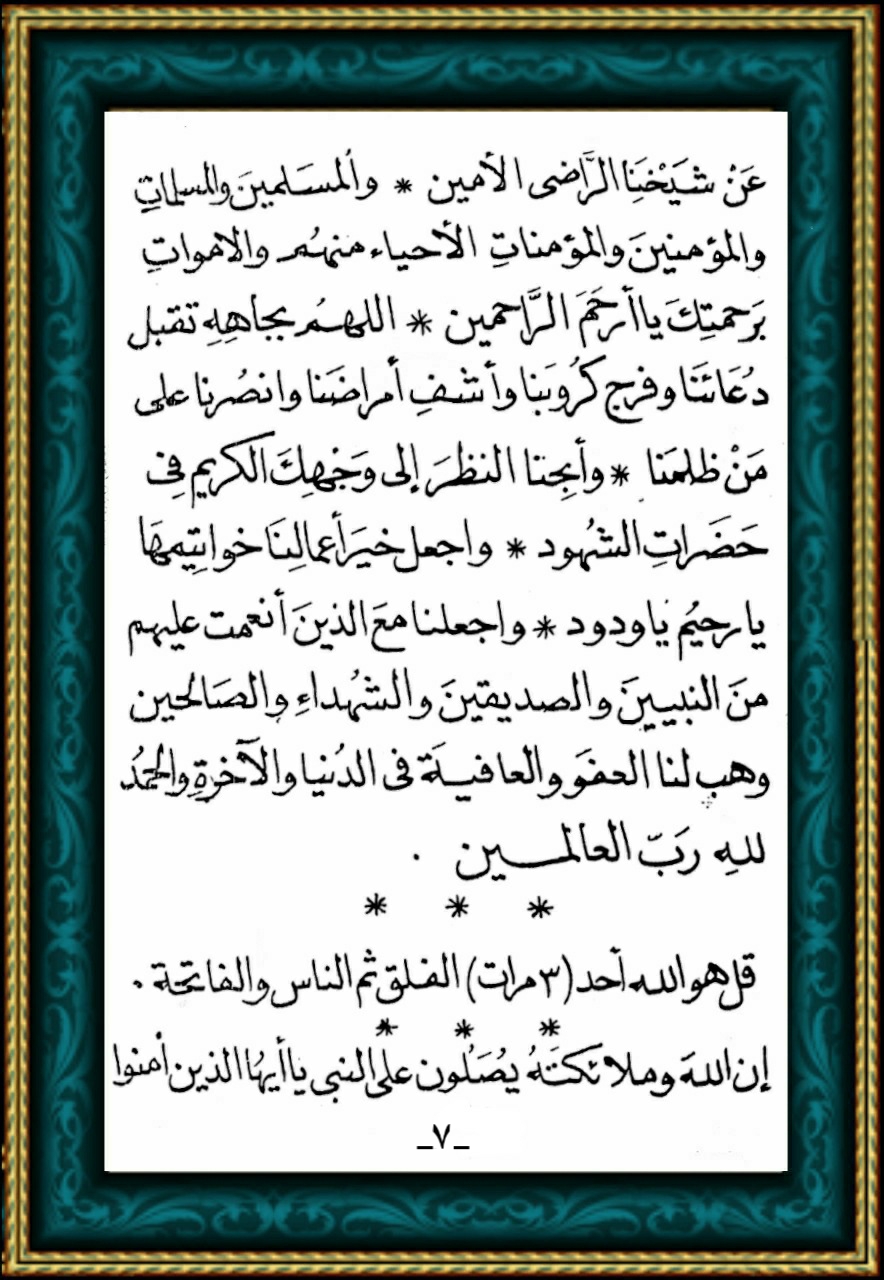 عَنْ شَيْخِنَا الرَّاضى الأمين * وألمسَلمينَ والمسلماتِ
والمؤمنينَ والمؤمناتِ الأحياء منهُم والامواتِ
بَرَحمتِكَ يا أرحَمَ الرَّاحمين * اللهمُ بجاهِهِ تقبل
دُعَائنَا وفرج كرُوبَنا وأشفِ أمراضَنا وانصُرنا على
مَنْ ظلمَنا * وأبِحنا النظرَ إلى وَجْهِكَ الكريم فِى
حَضَراتِ الشهُود * واجعل خيرَ أعمالِنَا خواتِيمهَا
يا رحيُم يا ودود * واجعلنا معَ الذينَ أنعمت عليهم
منَ النبيينَ والصديقينَ والشهُداءِ والصَالحين
وهب لنا العفوَ والعافيَة فى الدُنيا والآخرةِ والحمدُ
للهِ رَبّ العالمـين .
* * *
قل هو الله أحد (٣ مرات) الفلق ثم الناس والفاتحة .
* * *
إن اللهَ وملائكتَهُ يصُلُون على النبى يا أيهُا الذين أمنوا
_٧_